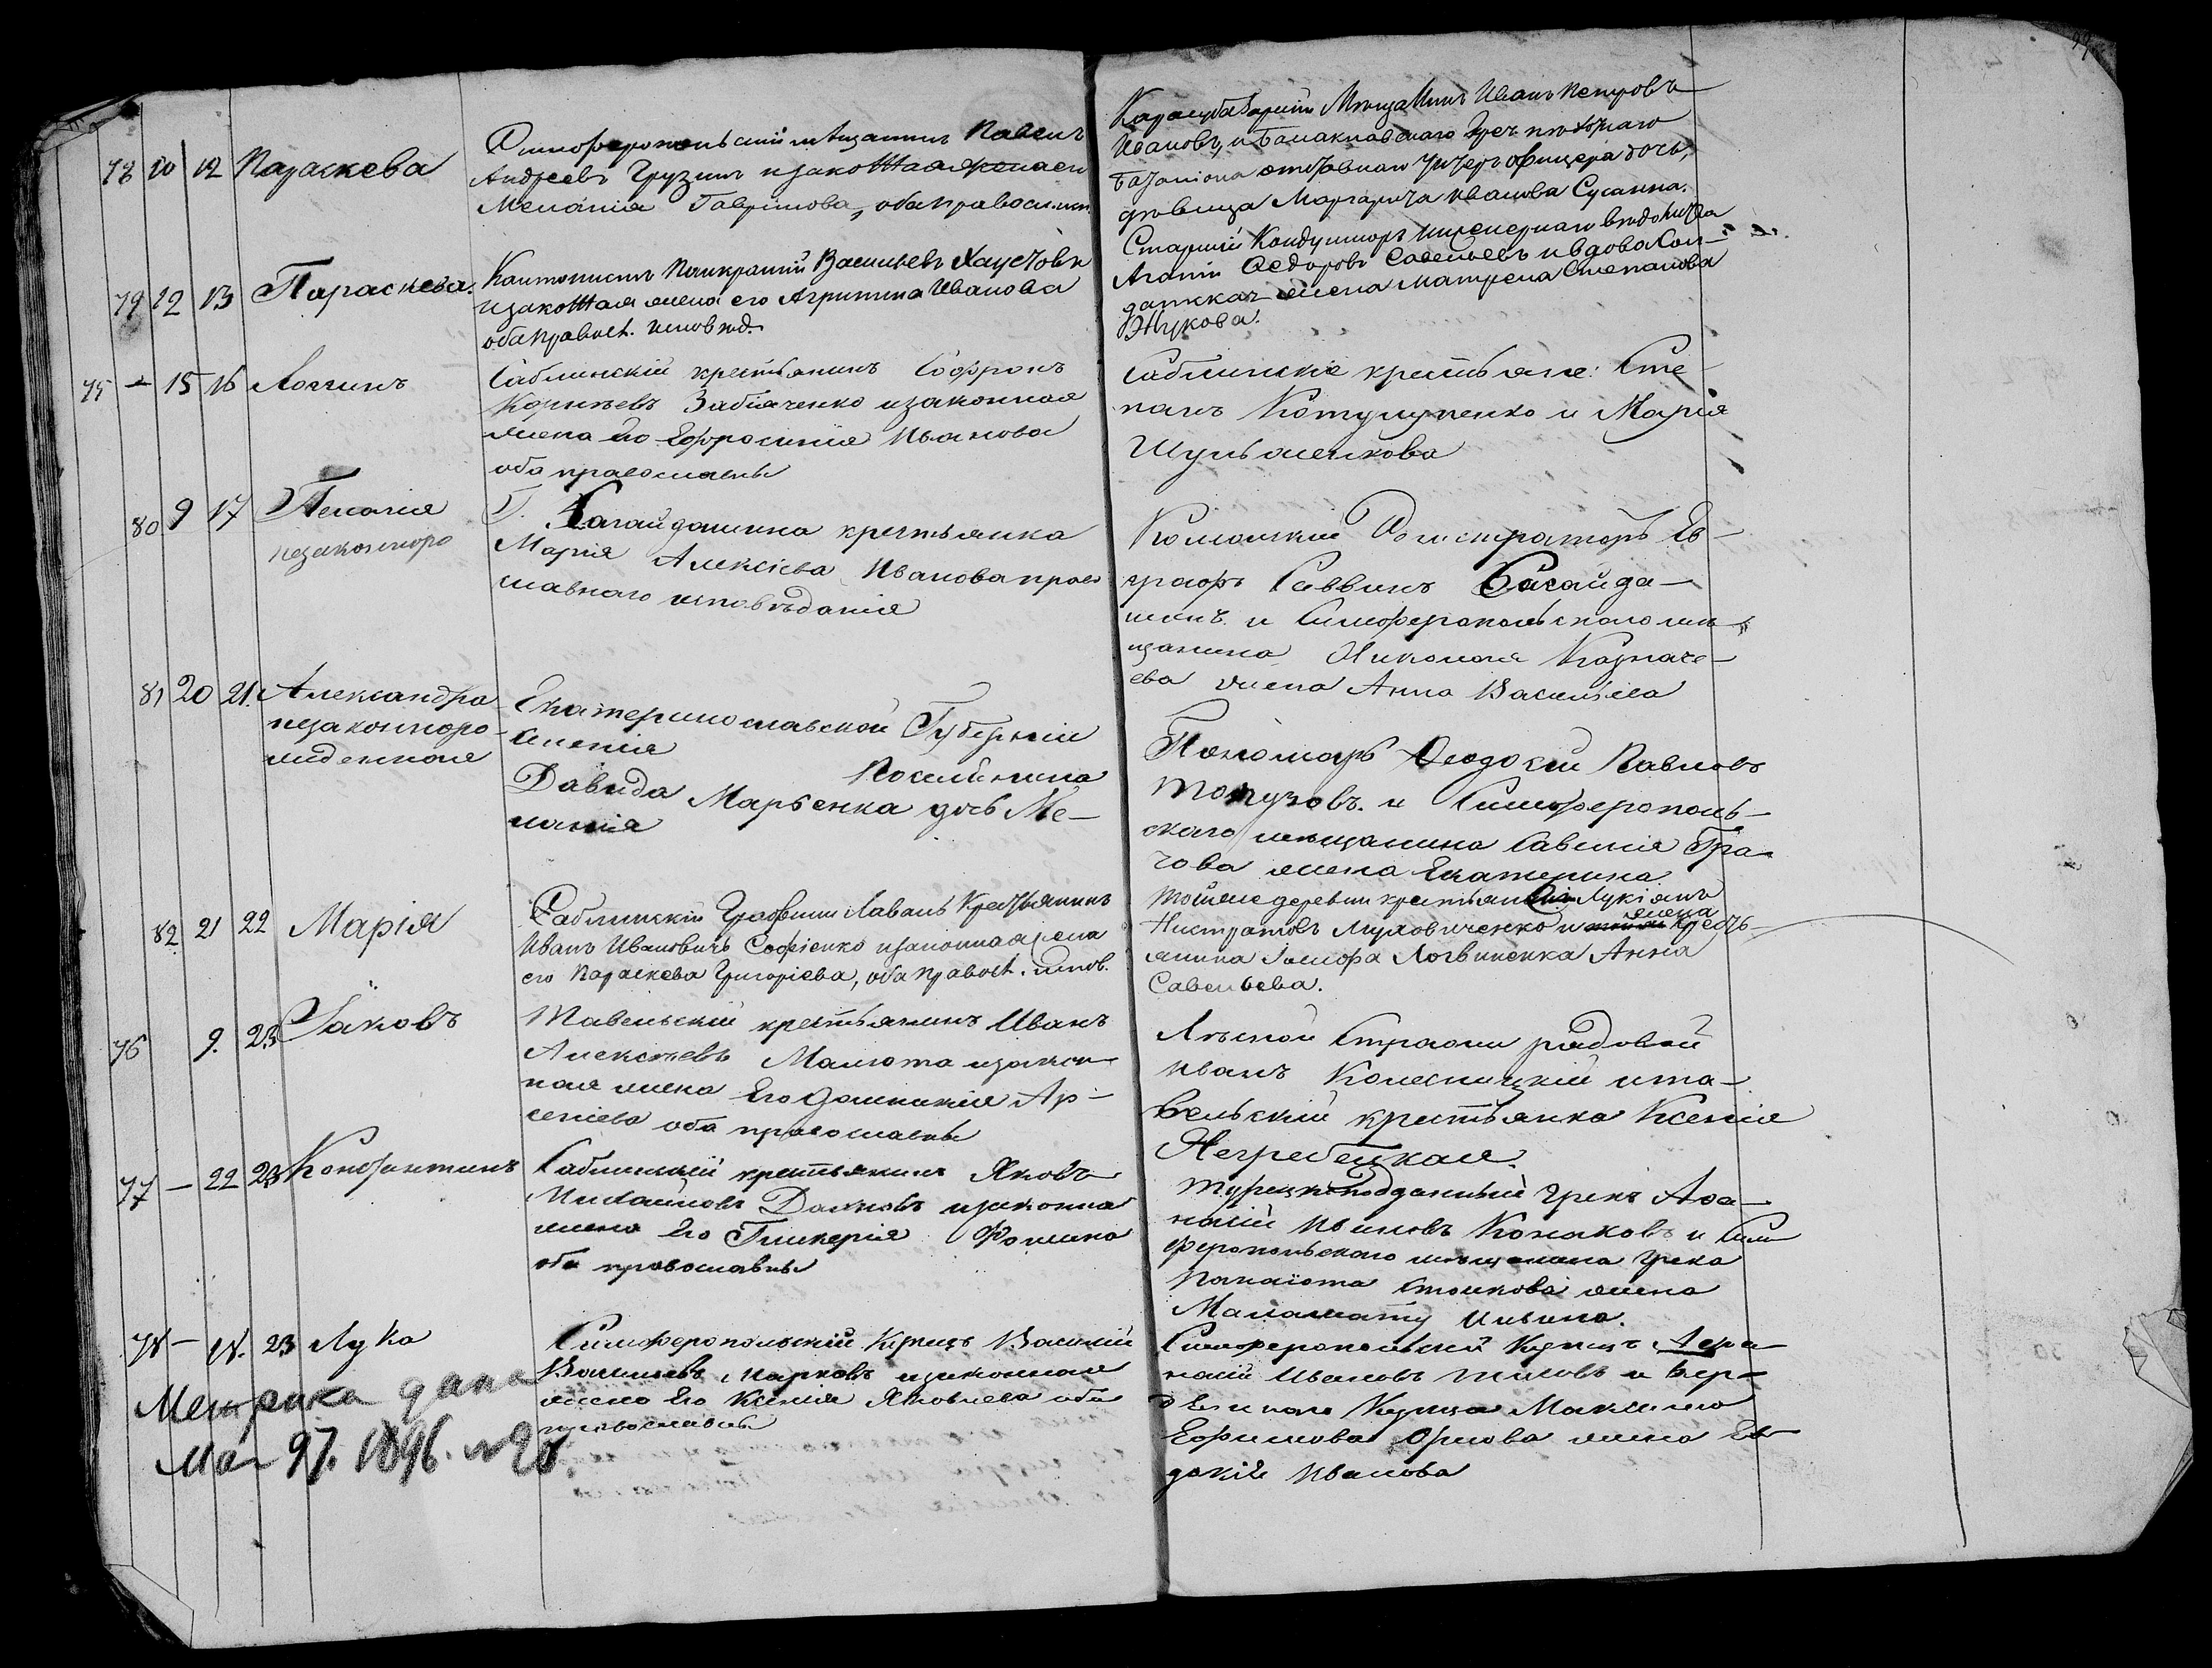 99
78 10 12 Параскева
Симферопольскій мѣщанинъ Павелъ
Андреевъ Грузинъ и законная жена его
Меланія Гаврилова, оба православн. исп.
Карасубазарскій Мѣщанинъ Иванъ Петровъ
Ивановъ, и Балаклавскаго Греч. пѣхотнаго
баталіона отставнаго Унтеръ офицера дочь,
дѣвица Маргарита Иванова Сусанна.
79 12 13 Параскева.
Кантонистъ Панкратій Васильевъ Хаустовъ
и законная жена его Агрипина Иванова
оба правосл. исповѣд.
Старшій Кондукторъ инженернаго вѣдомства
Агапій Ѳедоровъ Савельевъ и вдова Сол-
датская жена Матрена Степанова
Жукова.
75 — 15 16 Логгинъ
Саблинскій крестьянинъ Софронъ
Корнѣевъ Забіяченко и законная
жена его Ефросинія Иванова
оба православны
Саблинскіе крестьяне: Сте-
панъ и Марія
80 9 17 Пелагія
незаконноро
Г. Сагайдашина крестьянка
Марія Алексіева Иванова право
славнаго исповѣданія
Регистраторъ Ев-
графъ Саввинъ Сагайда-
шинъ и Симферопольскаго мѣ-
щанина Николая Казначе-
ева жена Анна Васильева
81 20 21. Александра
незаконноро-
жденная
Екатеринославской Губерніи
Поселянина
Давида Марченка дочь Ме-
ланія
Пономарь Ѳеодосій Павловъ
и Симферополь-
скаго мѣщанина Савелія Гра-
чова жена Екатерина
82 21 22 Марія
Саблинскій Графини Лаваль Крестьянинъ
Иванъ Ивановичъ Софіенко и законная жена
его Параскева Григоріева, оба правосл. испов.
Той же деревни крестьянинъ Лукіянъ
жена
Нистратовъ и Кресть-
янина Іосифа Логвиненка Анна
Савельева.
76 9. 23 Іаковъ
Тавельскій крестьянинъ Иванъ
Алексѣевъ Малюта и закон-
ная жена его Домникія Ар-
сеніева оба православны
Лѣсной Стражи рядовой
Иванъ Колесницкій и та-
вельскій крестьянка Ксенія
Негребецкая.
77 — 22 23 Константинъ
Саблинскій крестьянинъ Яковъ
Михайловъ и законна
жена его Гликерія Фомина
оба православны
Турецкоподданный Грекъ Аѳа-
насій Ивановъ Конаковъ и Сим
феропольскаго мѣщанина Грека
Панаіота Стоикова жена
Маламату Ильина.
78 — 18. 23 Лука
Симферопольскій Купецъ Василій
Васильевъ Марковъ и законная
жена его Ксенія Яковлева оба
православны
Симферопольскій Купецъ Аѳа-
насій Ивановъ Тиловъ и Бер-
дянскаго Купца Максима
Ефимова Орлова жена Ев-
докія Иванова
Метрика дана
1896. №